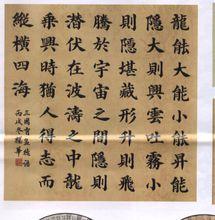 龍能大能小能昇能
隱大則興雲吐霧小
則隱堪藏形升則飛
騰於宇宙之間隱則
潛伏在波濤之中龍
乘興時猶人得志而
縱橫四海
三國曹孟德語
丙戌冬